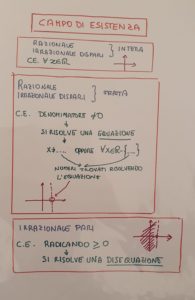 CAMPO DI ESISTENZA
RAZIONALE
IRRAZIONALE DISPARI } INTERA
C.E. ∀x∈ℝ
RAZIONALE
IRRAZIONALE DISPARI } FRATTA
C.E. DENOMINATORE ≠0
SI RISOLVE UNA EQUAZIONE
x≠.... OPPURE ∀x∈ℝ-{....}
NUMERI TROVATI RISOLVENDO
L'EQUAZIONE
IRRAZIONALI PARI
C.E. RADICANDO ≥ 0
SI RISOLVE UNA DISEQUAZIONE